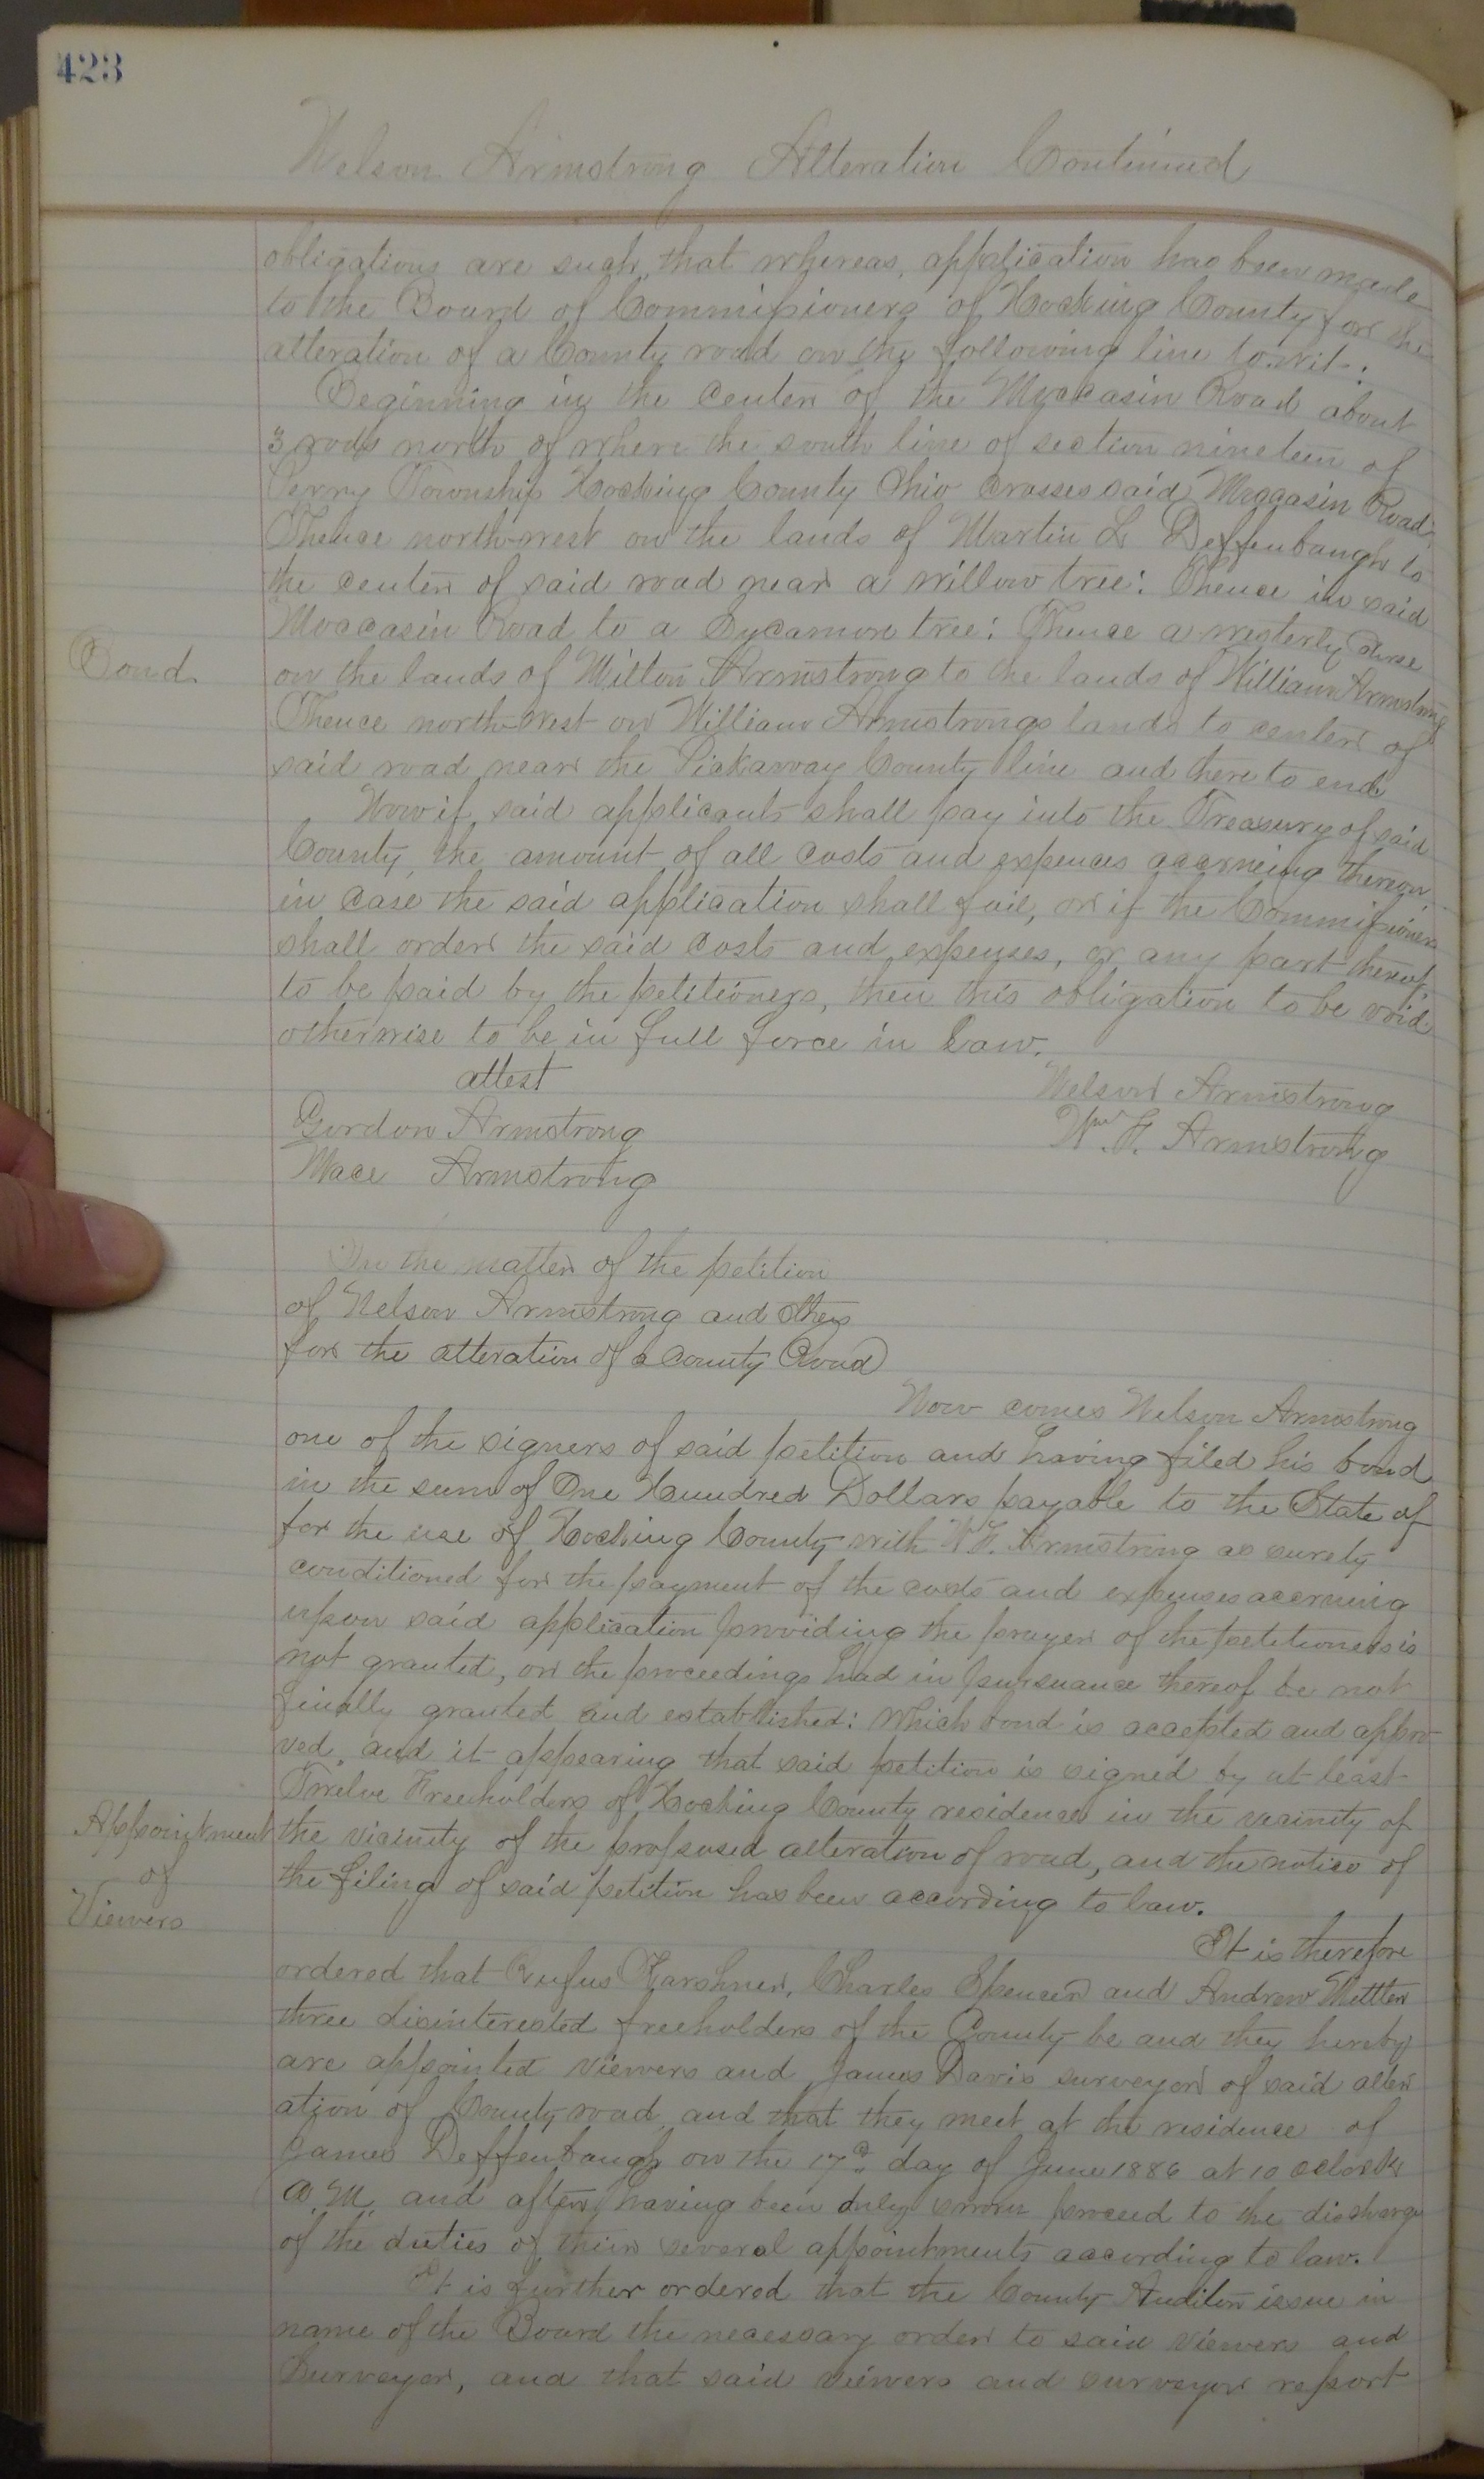 423
Nelson Armstrong Alteration Continued
obligations are such, that whereas, application has been made
to the Board of Commissioners of Hocking County for the
alteration of a County road on the following line to-wit:
Beginning in the center of the Moccasin Road about
3 rods north of where the south line of section nineteen of
Perry Township Hocking County Ohio crosses said Moccasin Road;
Thence north-west on the lands of Martin L Deffenbaugh to
the center of said road near a willow tree: Thence in said
Moccasin Road to a Sycamore tree: Thence a westerly
Bond
on the lands of Milton Armstrong to the lands of William Armstrong
Thence north-west on William Armstrongs lands to center of
said road near the Pickaway County line and there to end
Now if said applicants shall pay into the Treasury of said
County, the amount of all costs and expences accrueing thereon
in case the said application shall fail, or if the Commissioners
shall order the said costs and expenses, or any part thereof,
to be paid by the petitioners, then this obligation to be void
otherwise to be in full force in Law.
attest
Nelson Armstrong
Gordon Armstrong
Wm F. Armstrong
Mace Armstrong
In the matter of the petition
of Nelson Armstrong and others
for the alteration of a County Road
Now comes Nelson Armstrong
one of the signers of said petition and having filed his bond
in the sum of One Hundred Dollars payable to the State of
for the use of Hocking County with W.F. Armstrong as surety
conditioned for the payment of the costs and expenses accruing
upon said application providing the prayer of the petitioners is
not granted, or the proceedings had in pursuance thereof be not
finally granted and established: Which bond is accepted and appro-
ved, and it appearing that said petition is signed by at least
Twelve Freeholders of Hocking County residences in the vicinity of
Appointment
of
Viewers
the vicinity of the proposed alteration of road, and the notice of
the filing of said petition has been according to law.
It is therefore
ordered that Rufus Karshner, Charles Spencer and Andrew Mettler
three disinterested freeholders of the County be and they hereby
are appointed viewers and James Davis surveyor of said alter
ation of County road and that they meet at the residence of
James Deffenbaugh on the 17th day of June 1886 at 10 oclock
A.M. and after having been duly sworn proceed to the discharge
of the duties of their several appointments according to law.
It is further ordered that the County Auditor issue in
name of the Board the necessary order to said viewers and
Surveyor, and that said viewers and surveyor report